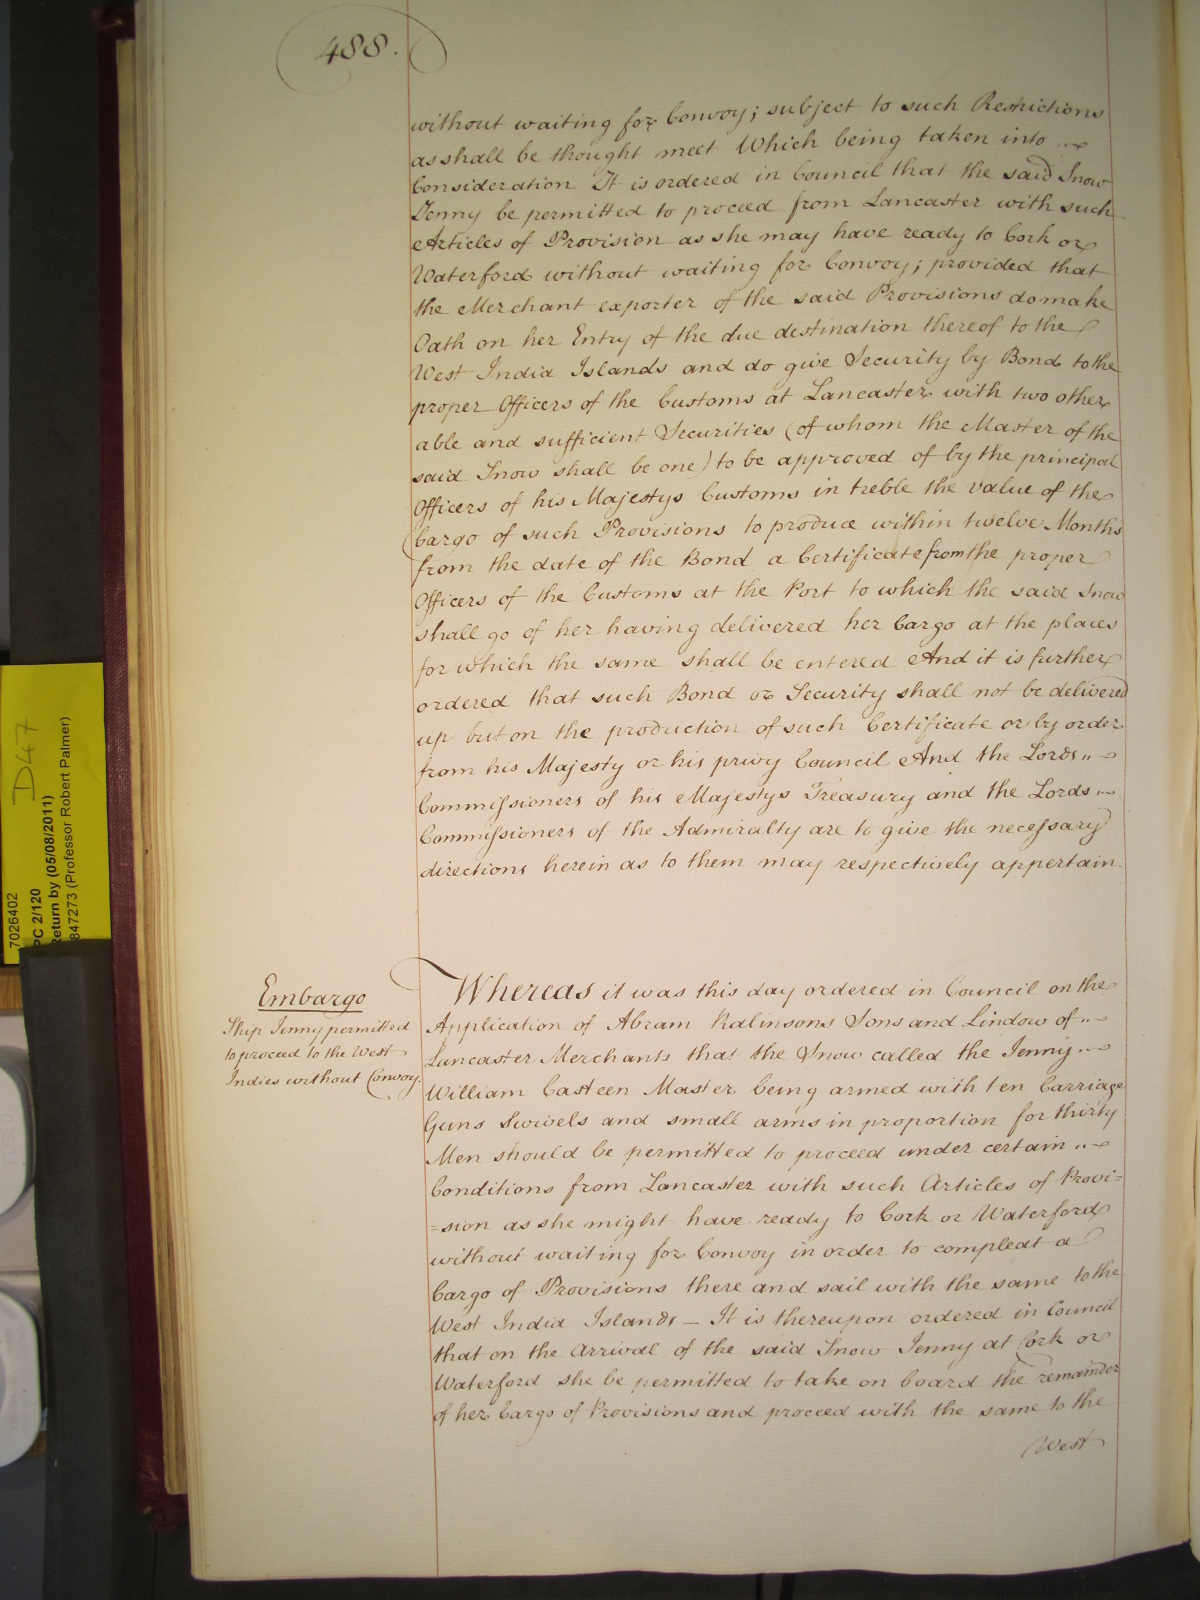 488.
without waiting for Convoy; subject to such Restrictions
as shall be thought meet Which being taken into
Consideration It is ordered in Council that the said Snow
Jenny be permitted to proceed from Lancaster with such
Articles of Provision as she may have ready to Cork or
Waterford without waiting for Convoy; provided that
the Merchant exporter of the said Provisions do make
Oath on her Entry of the due destination thereof to the
West India Islands and do give Security by Bond to the
proper Officers of the Customs at Lancaster with two other
able and sufficient Securities (of whom the Master of the
said Snow shall be one) to be approved of by the principal
Officers of his Majestys Customs in treble the value of the
Cargo of such Provisions to produce within twelve Months
from the date of the Bond a Certificate from the proper
Officers of the Customs at the Port to which the said Snow
shall go of her having delivered her Cargo at the places
for which the same shall be entered And it is further
ordered that such Bond or Security shall not be delivered
up but on the production of such Certificate or by order
from his Majesty or his privy Council And the Lords
Commissioners of his Majestys Treasury and the Lords
Commissioners of the Admiralty are to give the necessary
directions herein as to them may respectively appertain.
Embargo
Ship Jenny permitted
to proceed to the West
Indies without Convoy.
Whereas it was this day ordered in Council on the
Application of Abram Ralinsons Sons and Lindow of
Lancaster Merchants that the Snow called the Jenny
William Casteen Master being armed with ten Carriage
Guns Swivels and small arms in proportion for thirty
Men should be permitted to proceed under certain
Conditions from Lancaster with such Articles of Provi=
=sion as she might have ready to Cork or Waterford
without waiting for Convoy in order to compleat a
Cargo of Provisions there and sail with the same to the
West India Islands — It is thereupon ordered in Council
that on the Arrival of the said Snow Jenny at Cork or
Waterford she be permitted to take on board the remainder
of her Cargo of Provisions and proceed with the same to the
West
D47
7026402
PC 2/120
Return by (05/08/2011)
847273 (Professor Robert Palmer)